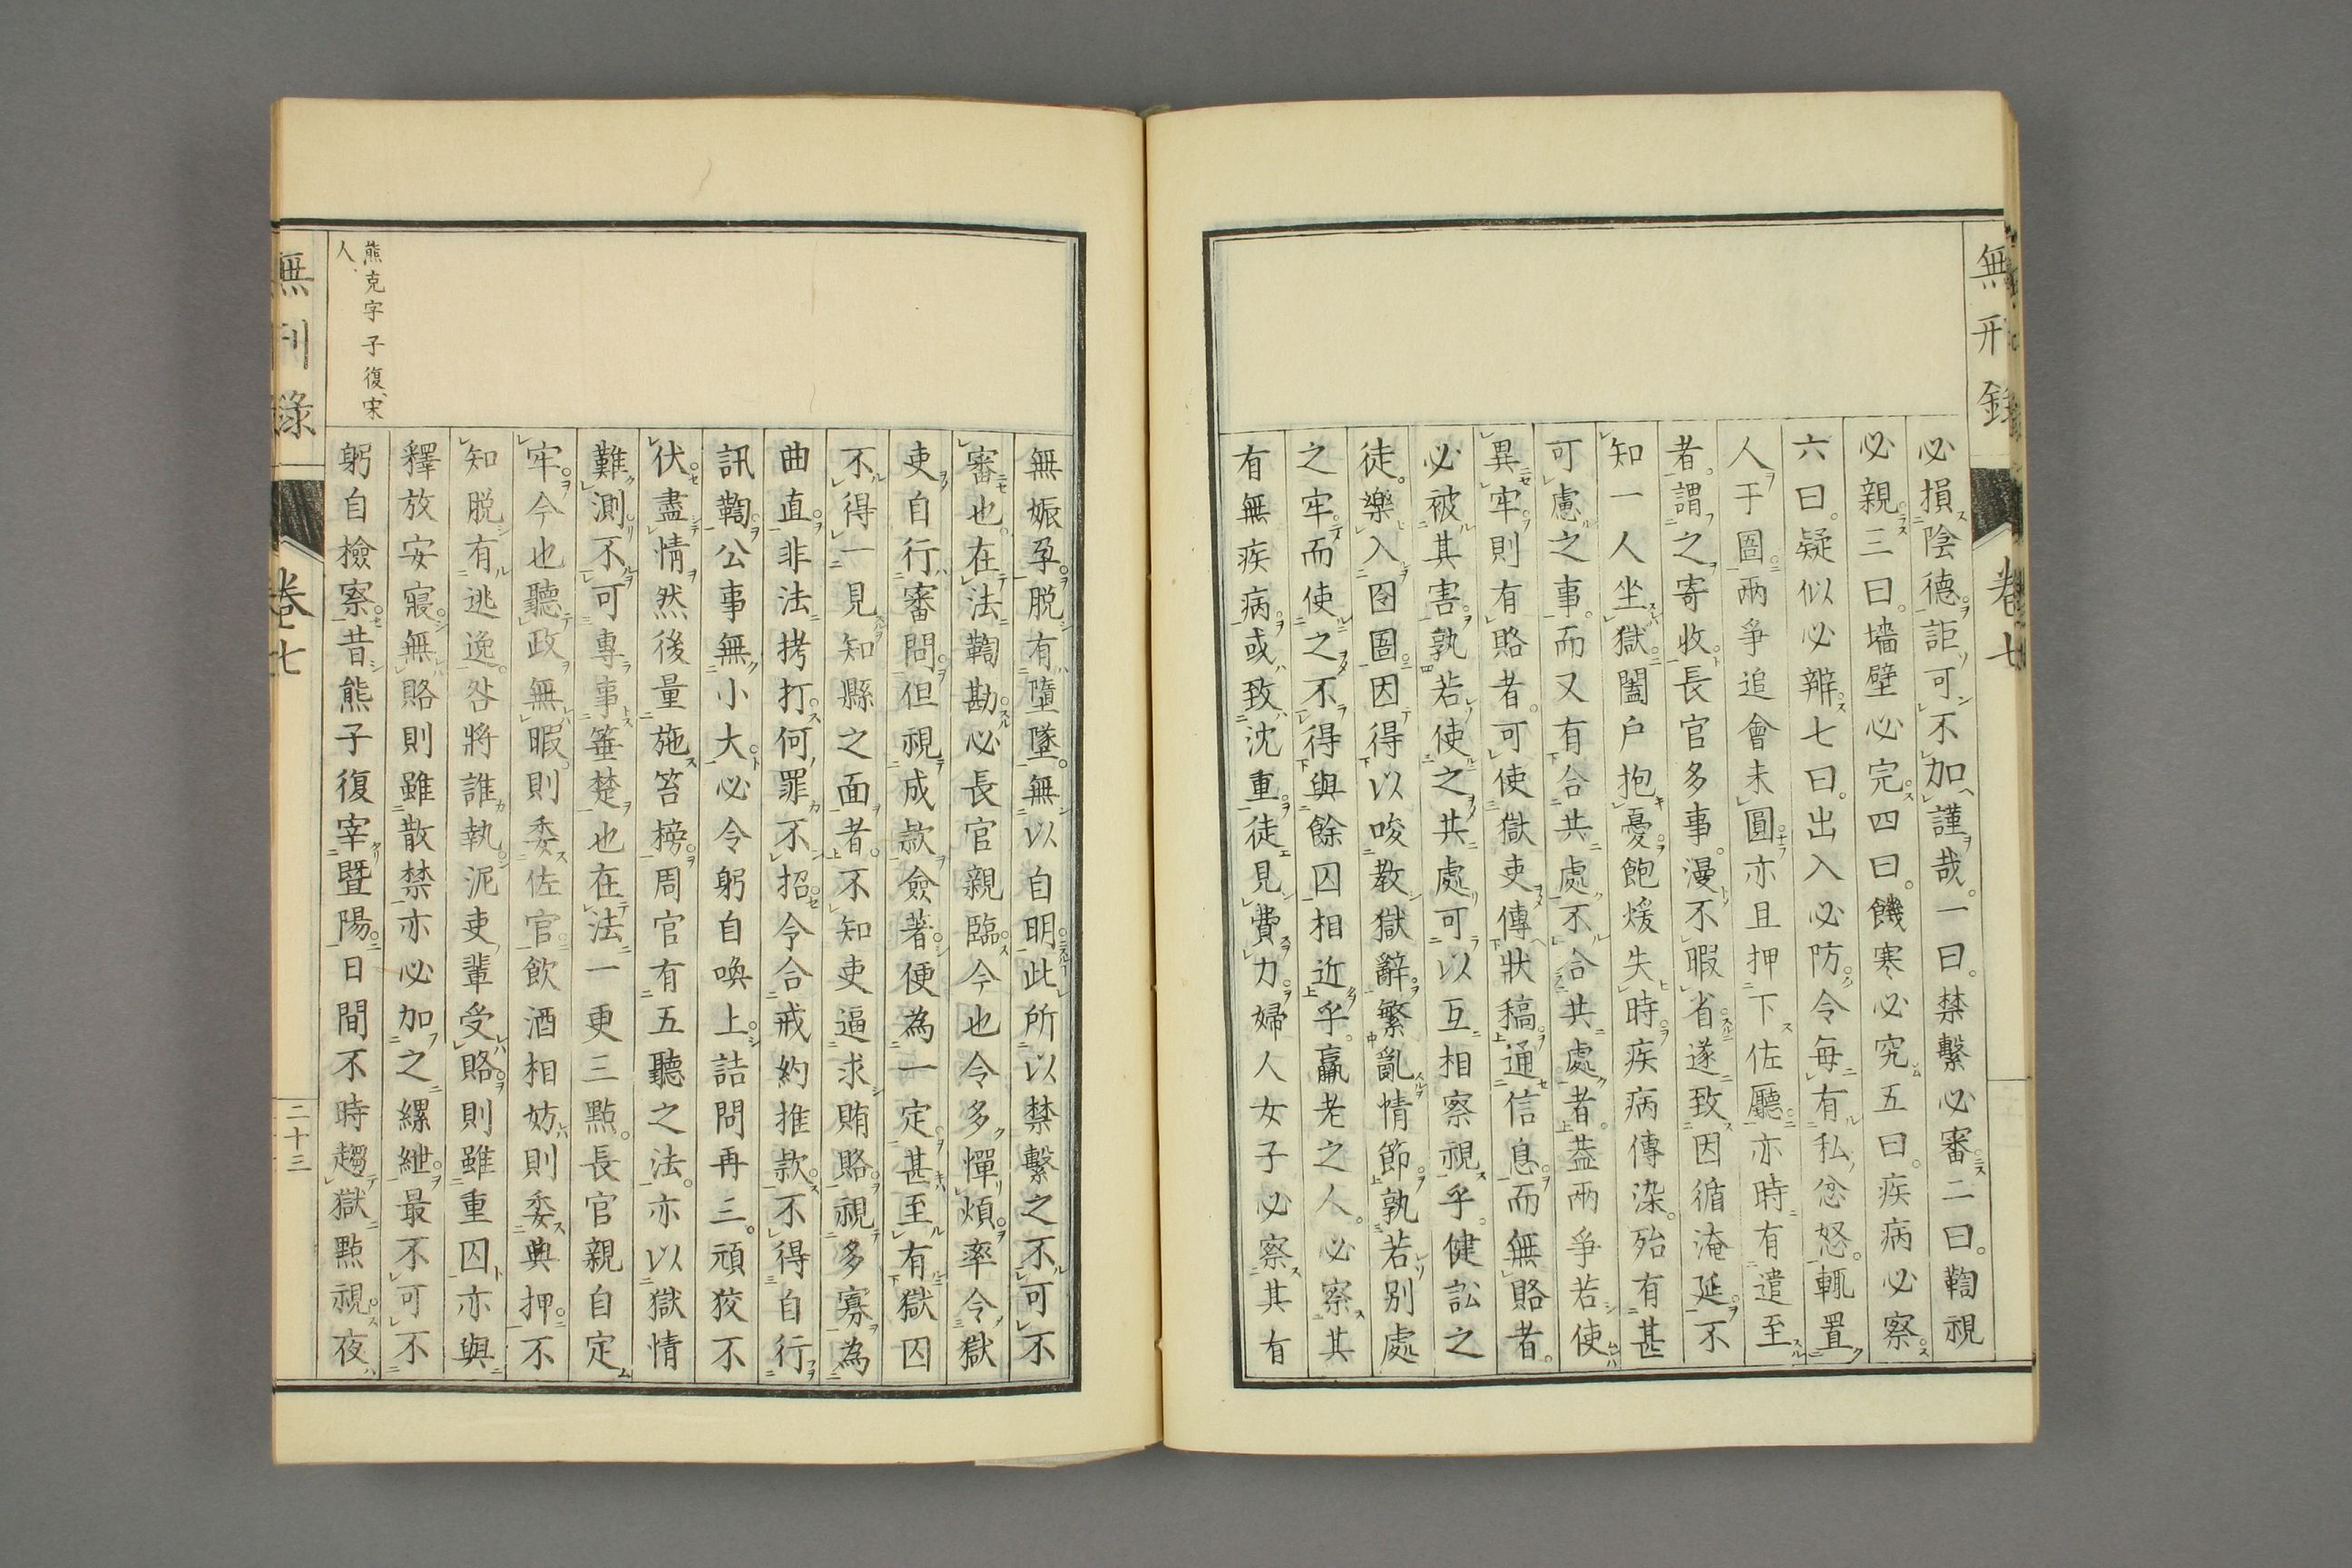 無刑錄
卷七
必損陰德詎可不加謹哉。一曰。禁繫必審二曰。鞫視
必親三曰。墻壁必完四曰。饑寒必究五曰。疾病必察
六曰。疑似必辨七曰。出入必防令每有私忿怒。輒置
人于圄兩爭追會未圓亦且押下佐廳亦時有遣至
者。謂之寄收長官多事。漫不暇省遂致因循淹延不
知一人坐獄闔户抱憂飽煖失時疾病傳染。殆有甚
可慮之事。而又有合共處不合共處者。葢兩爭若使
異牢則有賂者。可使獄吏傳狀稿通信息而無賂者。
必被其害孰若使之共處可以互相察視乎。健訟之
徒。樂入囹圄因得以唆教獄辭繁亂情節孰若別處
之牢而使之不得與餘囚相近乎。羸老之人。必察其
有無疾病或致沈重徒見費力婦人女子必察其有
無娠孕脱有墮墜。無以自明此所以禁繫之不可不
審也。在法鞫勘必長官親臨今也令多憚煩率令獄
吏自行審問但視成款僉著便為一定甚至有獄囚
不得一見知縣之面者。不知吏逼求賄賂視多寡為
曲直非法拷打何罪不招令合戒約推款不得自行
訊鞫公事無小大必令躬自喚上詰問再三。頑狡不
伏盡情然後量施笞榜周官有五聽之法。亦以獄情
難測不可專事箠楚也在法一更三點。長官親自定
牢今也聽政無暇。則委佐官飲酒相妨則委典押不
知脱有逃逸。咎將誰執泥吏輩受賂則雖重囚亦與
釋放安寢無賂則雖散禁亦必加之縲紲最不可不
躬自檢察昔熊子復宰暨陽日間不時趨獄點視夜
熊克字子復、宋
人、
無刑錄
卷七
二十三